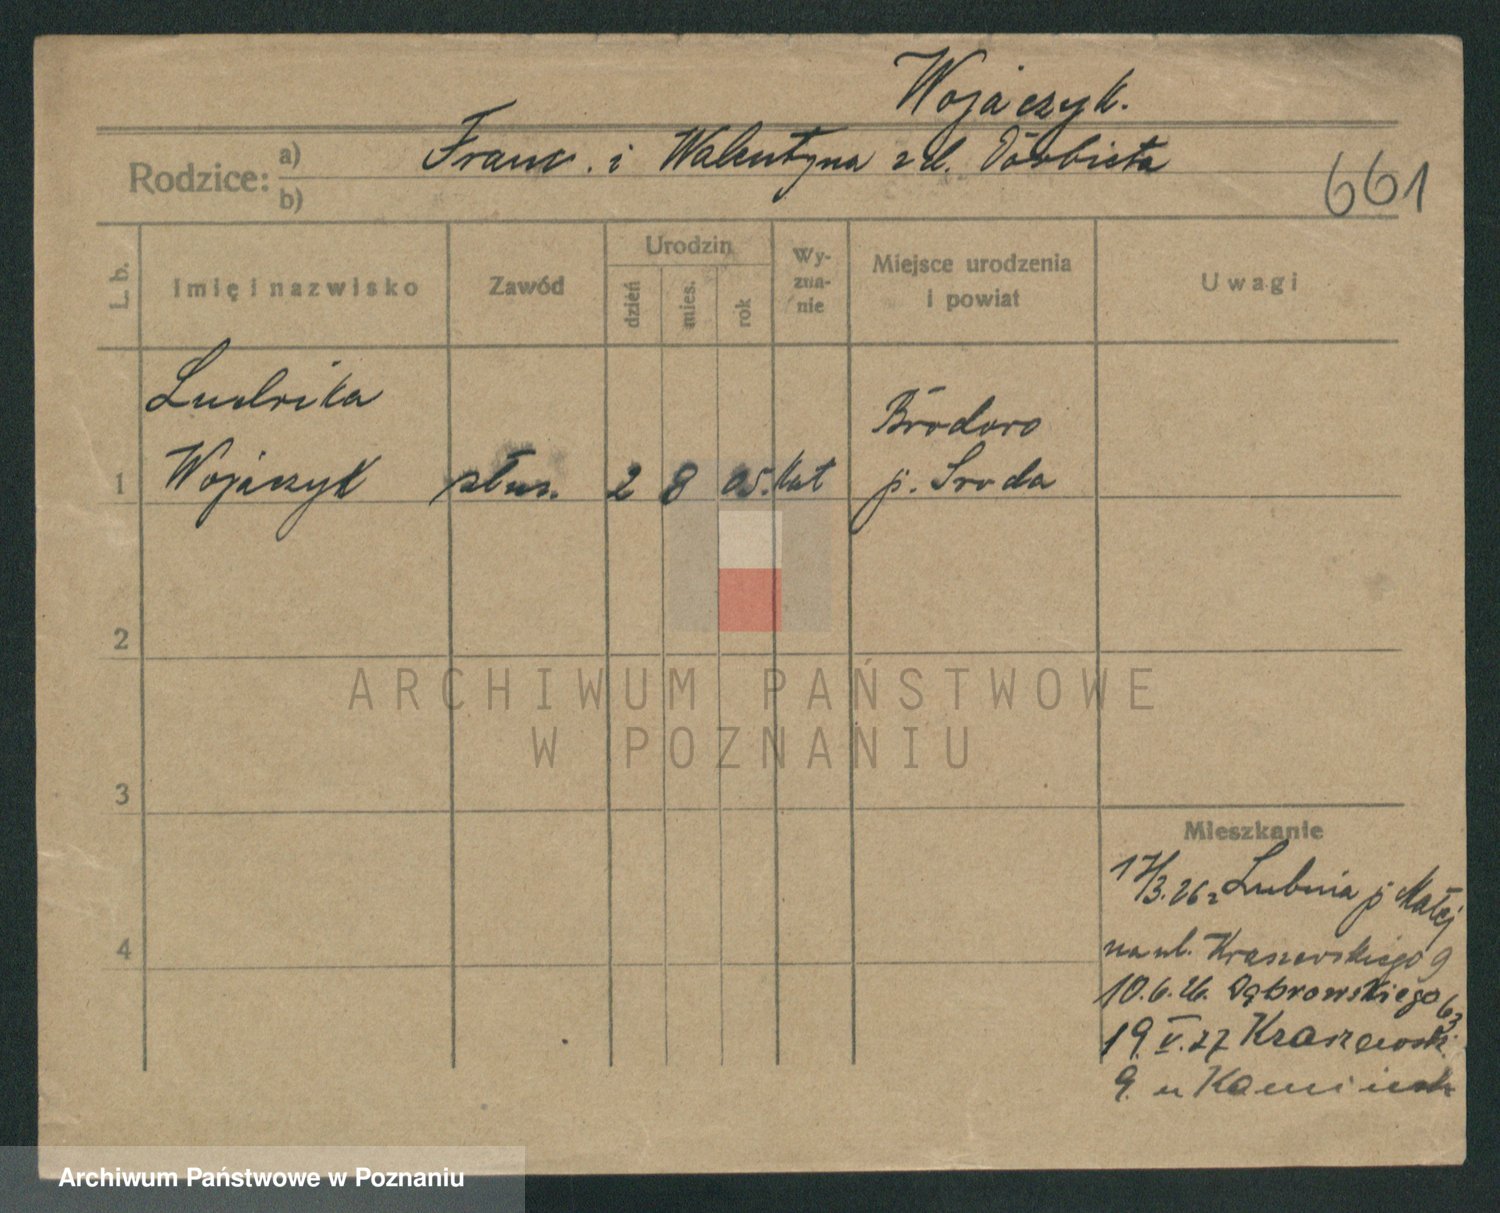 Wojaczyk.
Rodzice: a) b)
Franc. i Walentyna zd.
661
L. b.
Imię i nazwisko
Zawód
Urodzin
dzień
mies.
rok
Wy-
zna-
nie
Miejsce urodzenia
i powiat
Uwagi
Ludwika
Brodowo
1 Wojaczyk służ. 2 8 05. kat p. Sroda
2
ARCHIWUM PAŃSTWOWE
W POZNANIU
3
Mieszkanie
17/3. 26 z Lubnia p Małej
4
na ul. Kraszewskiego 9
10.6.26. Dąbrowskiego 63
19.V.27 Kraszewsk.
9. u
Archiwum Państwowe w Poznaniu